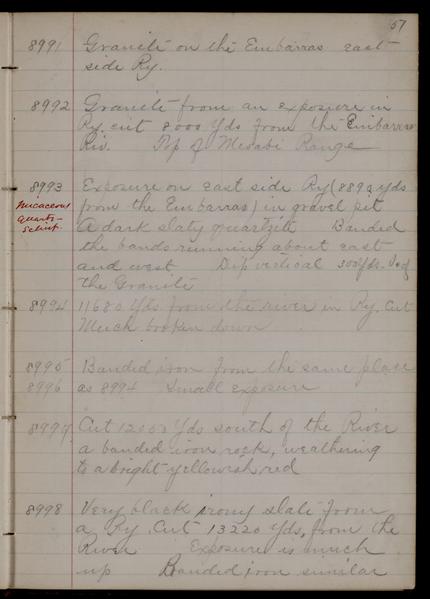 57
8991 Granite on the Embarras east
side Ry.
8992 Granite from an exposure in
Ry. cut 8000 Yds from the Embarras
Riv. Top of Mesabi Range
8993 Exposure on east side Ry (8890 yds
micaceous
quartz-
schist.
from the Embarras) in gravel pit
A dark slaty quartzite Banded
the bands running about east
and west Dip vertical 300 yds. S. of
the Granite
8994 11680 Yds from the river in Ry. Cut
Much broken down
8995 Banded iron from the same place
8996 as 8994 Small exposure
8997 Cut 12000 Yds south of the River
a banded iron rock, weathering
to a bright yellowish red
8998 Very black irony slate from
a Ry. Cut 13220 Yds, from the
River Exposure is much
up Banded iron similar